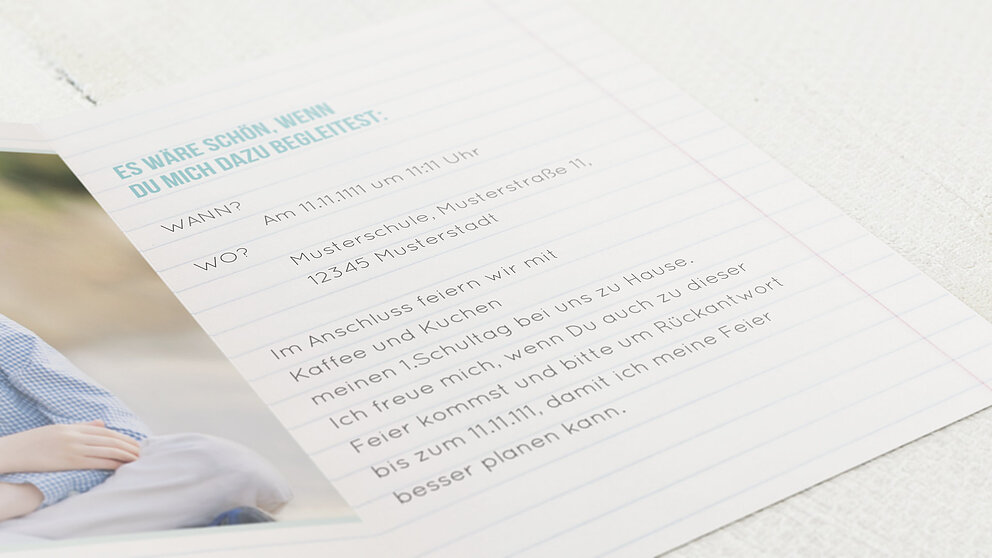 ES WÄRE SCHÖN, WENN
DU MICH DAZU BEGLEITEST:
WANN? Am 11.11.1111 um 11:11 Uhr
WO? Musterschule, Musterstraße 11,
12345 Musterstadt
Im Anschluss feiern wir mit
Kaffee und Kuchen
meinen 1.Schultag bei uns zu Hause.
Ich freue mich, wenn Du auch zu dieser
Feier kommst und bitte um Rückantwort
bis zum 11.11.111, damit ich meine Feier
besser planen kann.